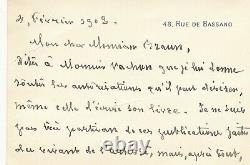 4, Février 1902.
48, RUE DE BASSANO
Mon cher Monsieur
Dites à Monsieur Vachon que je lui donne
toutes les autorisations qu'il peut désirer,
même celle d'écrire son livre. Je ne suis
pas très partisan de ces publications faites
du vivant de l'auteur, mais, après tout